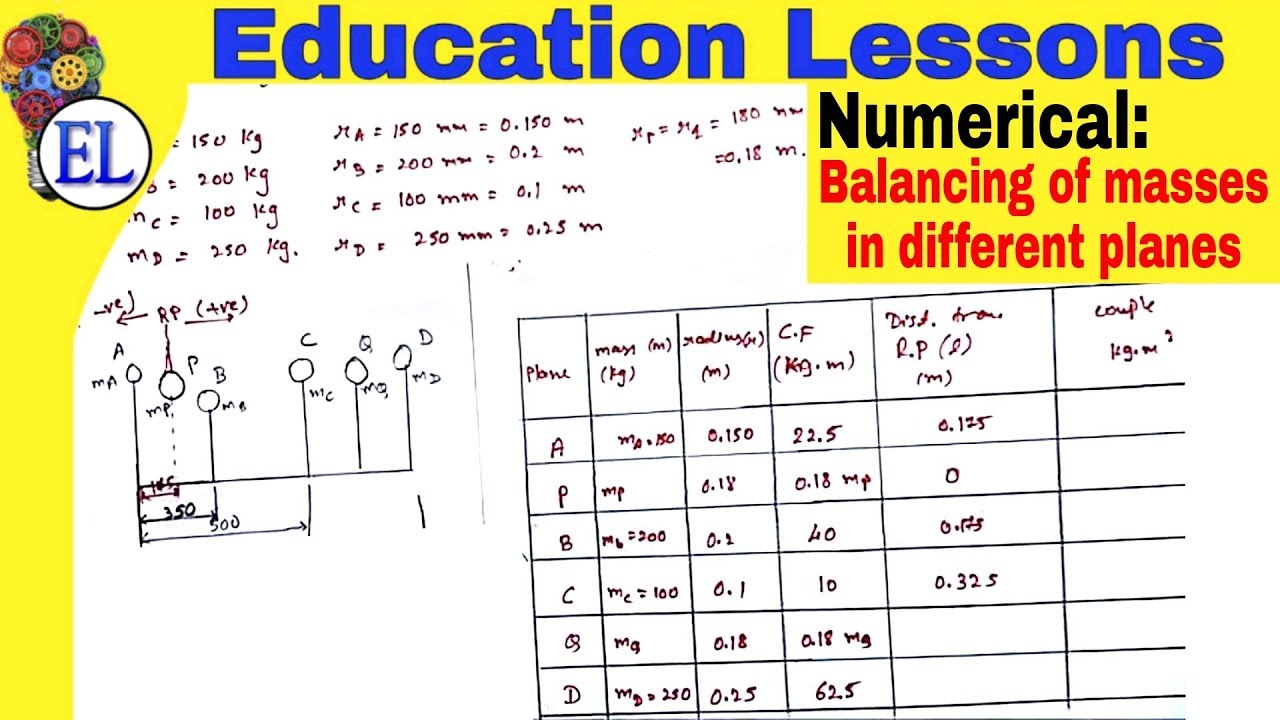 Education Lessons
EL
Numerical:
Balancing of masses
in different planes
= 150 kg
B = 200 kg
mC = 100 kg
mD = 250 kg.
rA = 150 mm = 0.150 m
rB = 200 mm = 0.2 m
rC = 100 mm = 0.1 m
rD = 250 mm = 0.25 m
rP = rq = 180 mm
= 0.18 m.
-ve) RP (+ve)
A P B C Q D
mA mP mB mC mQ mD
350
500
Plane mass (m) (kg) radius(r) (m) C.F (kg.m) Dist. from R.P (l) (m) couple kg.m²
A mA=150 0.150 22.5 0.175
P mp 0.18 0.18 mp 0
B mb=200 0.2 40 0.175
C mc=100 0.1 10 0.325
Q mq 0.18 0.18 mq
D mD=250 0.25 62.5